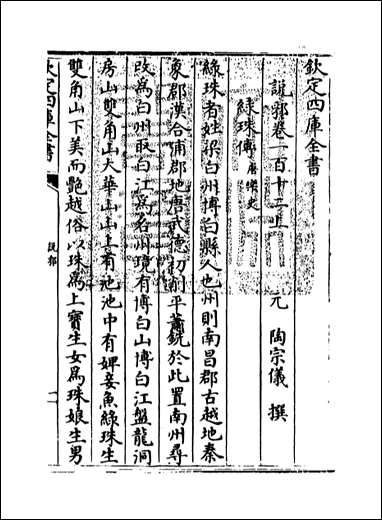 欽定四庫全書
說郛卷一百十二上
元 陶宗儀 撰
綠珠傳 唐樂史
綠珠者姓梁白州博白縣人也州則南昌郡古越地秦
象郡漢合浦郡地唐武德初削平蕭銑於此置南州尋
改為白州取白江為名州境有博白山博白江盤龍洞
房山雙角山大華山山上有池池中有婢妾魚綠珠生
雙角山下美而艷越俗以珠為上寶生女為珠娘生男
欽定四庫全書
說郛